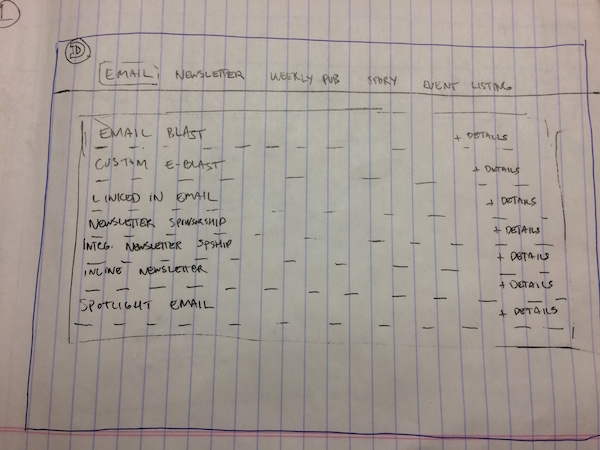 1
D
EMAIL NEWSLETTER WEEKLY PUB STORY EVENT LISTING
EMAIL BLAST + DETAILS
CUSTOM E-BLAST + DETAILS
LINKED IN EMAIL + DETAILS
NEWSLETTER SPONSORSHIP + DETAILS
INTEG. NEWSLETTER SPSHIP + DETAILS
INLINE NEWSLETTER + DETAILS
SPOTLIGHT EMAIL + DETAILS